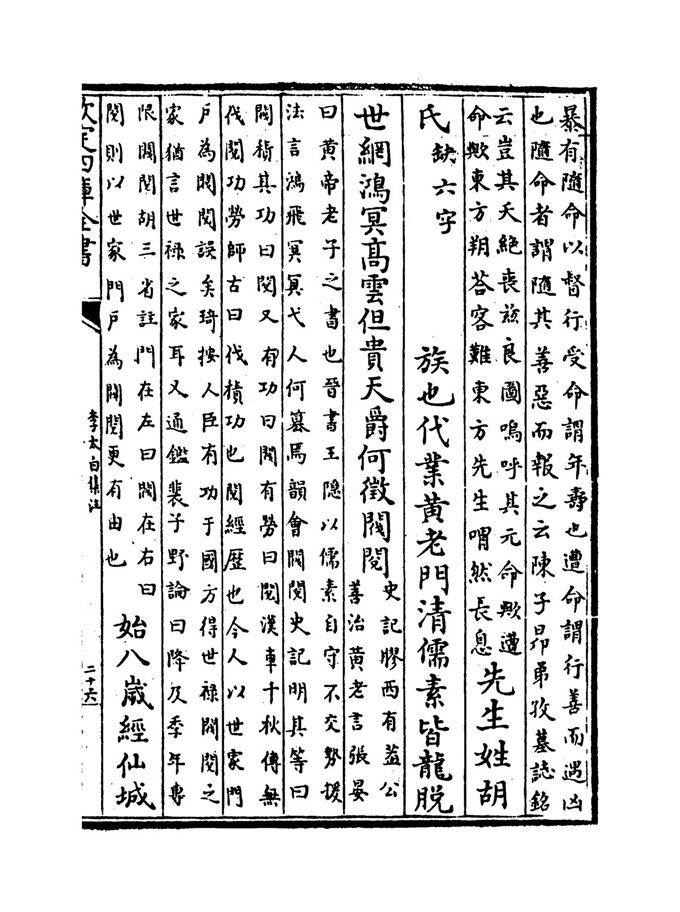 暴有隨命以督行受命謂年壽也遭命謂行善而遇凶
也隨命者謂隨其善惡而報之云陳子昻弟孜墓誌銘
云豈其夭絶喪兹良圖嗚呼其元命歟遭
命歟東方朔荅客難東方先生喟然長息
先生姓胡
氏缺六字
族也代業黄老門清儒素皆龍脱
世網鴻冥高雲但貴天爵何徵閥閲
史記膠西有葢公
善治黄老言張晏
曰黄帝老子之書也晉書王隱以儒素自守不交勢援
法言鴻飛冥冥弋人何慕焉韻會閥閲史記明其等曰
閥積其功曰閲又有功曰閥有勞曰閲漢車千秋傳無
伐閲功勞師古曰伐積功也閲經歴也今人以世家門
戸為閥閲誤矣琦按人臣有功于國方得世禄閥閲之
家猶言世禄之家耳又通鑑裴子野論曰降及季年專
限閥閲胡三省註門在左曰閥在右曰
閲則以世家門戸為閥閲更有由也
始八嵗經仙城
欽定四庫全書
李太白集注
二十六